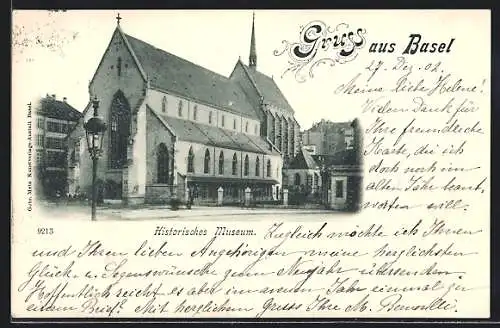 Gruss aus Basel
27. Dez. 02.
Meine liebe Helene!
Vielen Dank für
Ihre freundliche
Karte, die ich
doch noch im
alten Jahr beant-
worten will.
Gebr. Metz Kunstverlags-Anstalt Basel.
9213
Historisches Museum.
Zugleich möchte ich Ihnen
und Ihren lieben Angehörigen meine herzlichsten
Glück- u. Segenswünsche zum Neujahr
Hoffentlich reicht es aber im neuen Jahr einmal zu
einem Brief! Mit herzlichem Gruss Ihre M. Bernoulli.